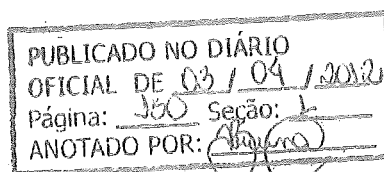 PUBLICADO NO DIÁRIO
OFICIAL DE 03 / 04 / 2012
Página: 150 Seção: 1
ANOTADO POR: